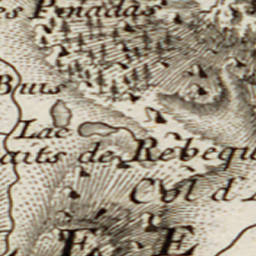 es Pinadas
Buis
Lac
aits de Rebequ
Col d'
F E